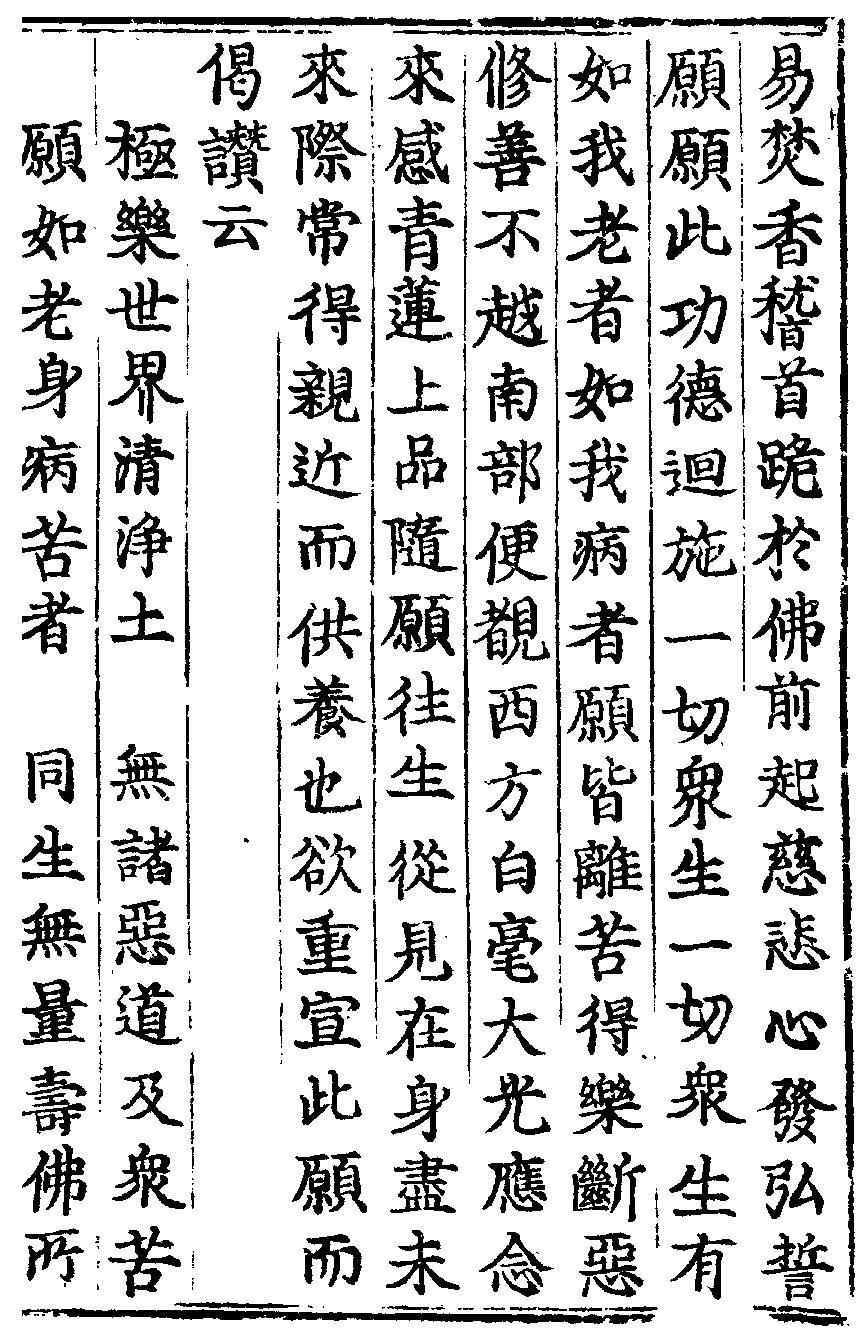 易焚香稽首跪於佛前起慈悲心發弘誓
願願此功德迴施一切衆生一切衆生有
如我老者如我病者願皆離苦得樂斷惡
修善不越南部便覩西方白毫大光應念
來感青蓮上品隨願往生從見在身盡未
來際常得親近而供養也欲重宣此願而
偈讚云
極樂世界清浄土　無諸惡道及衆苦
願如老身病苦者　同生無量壽佛所